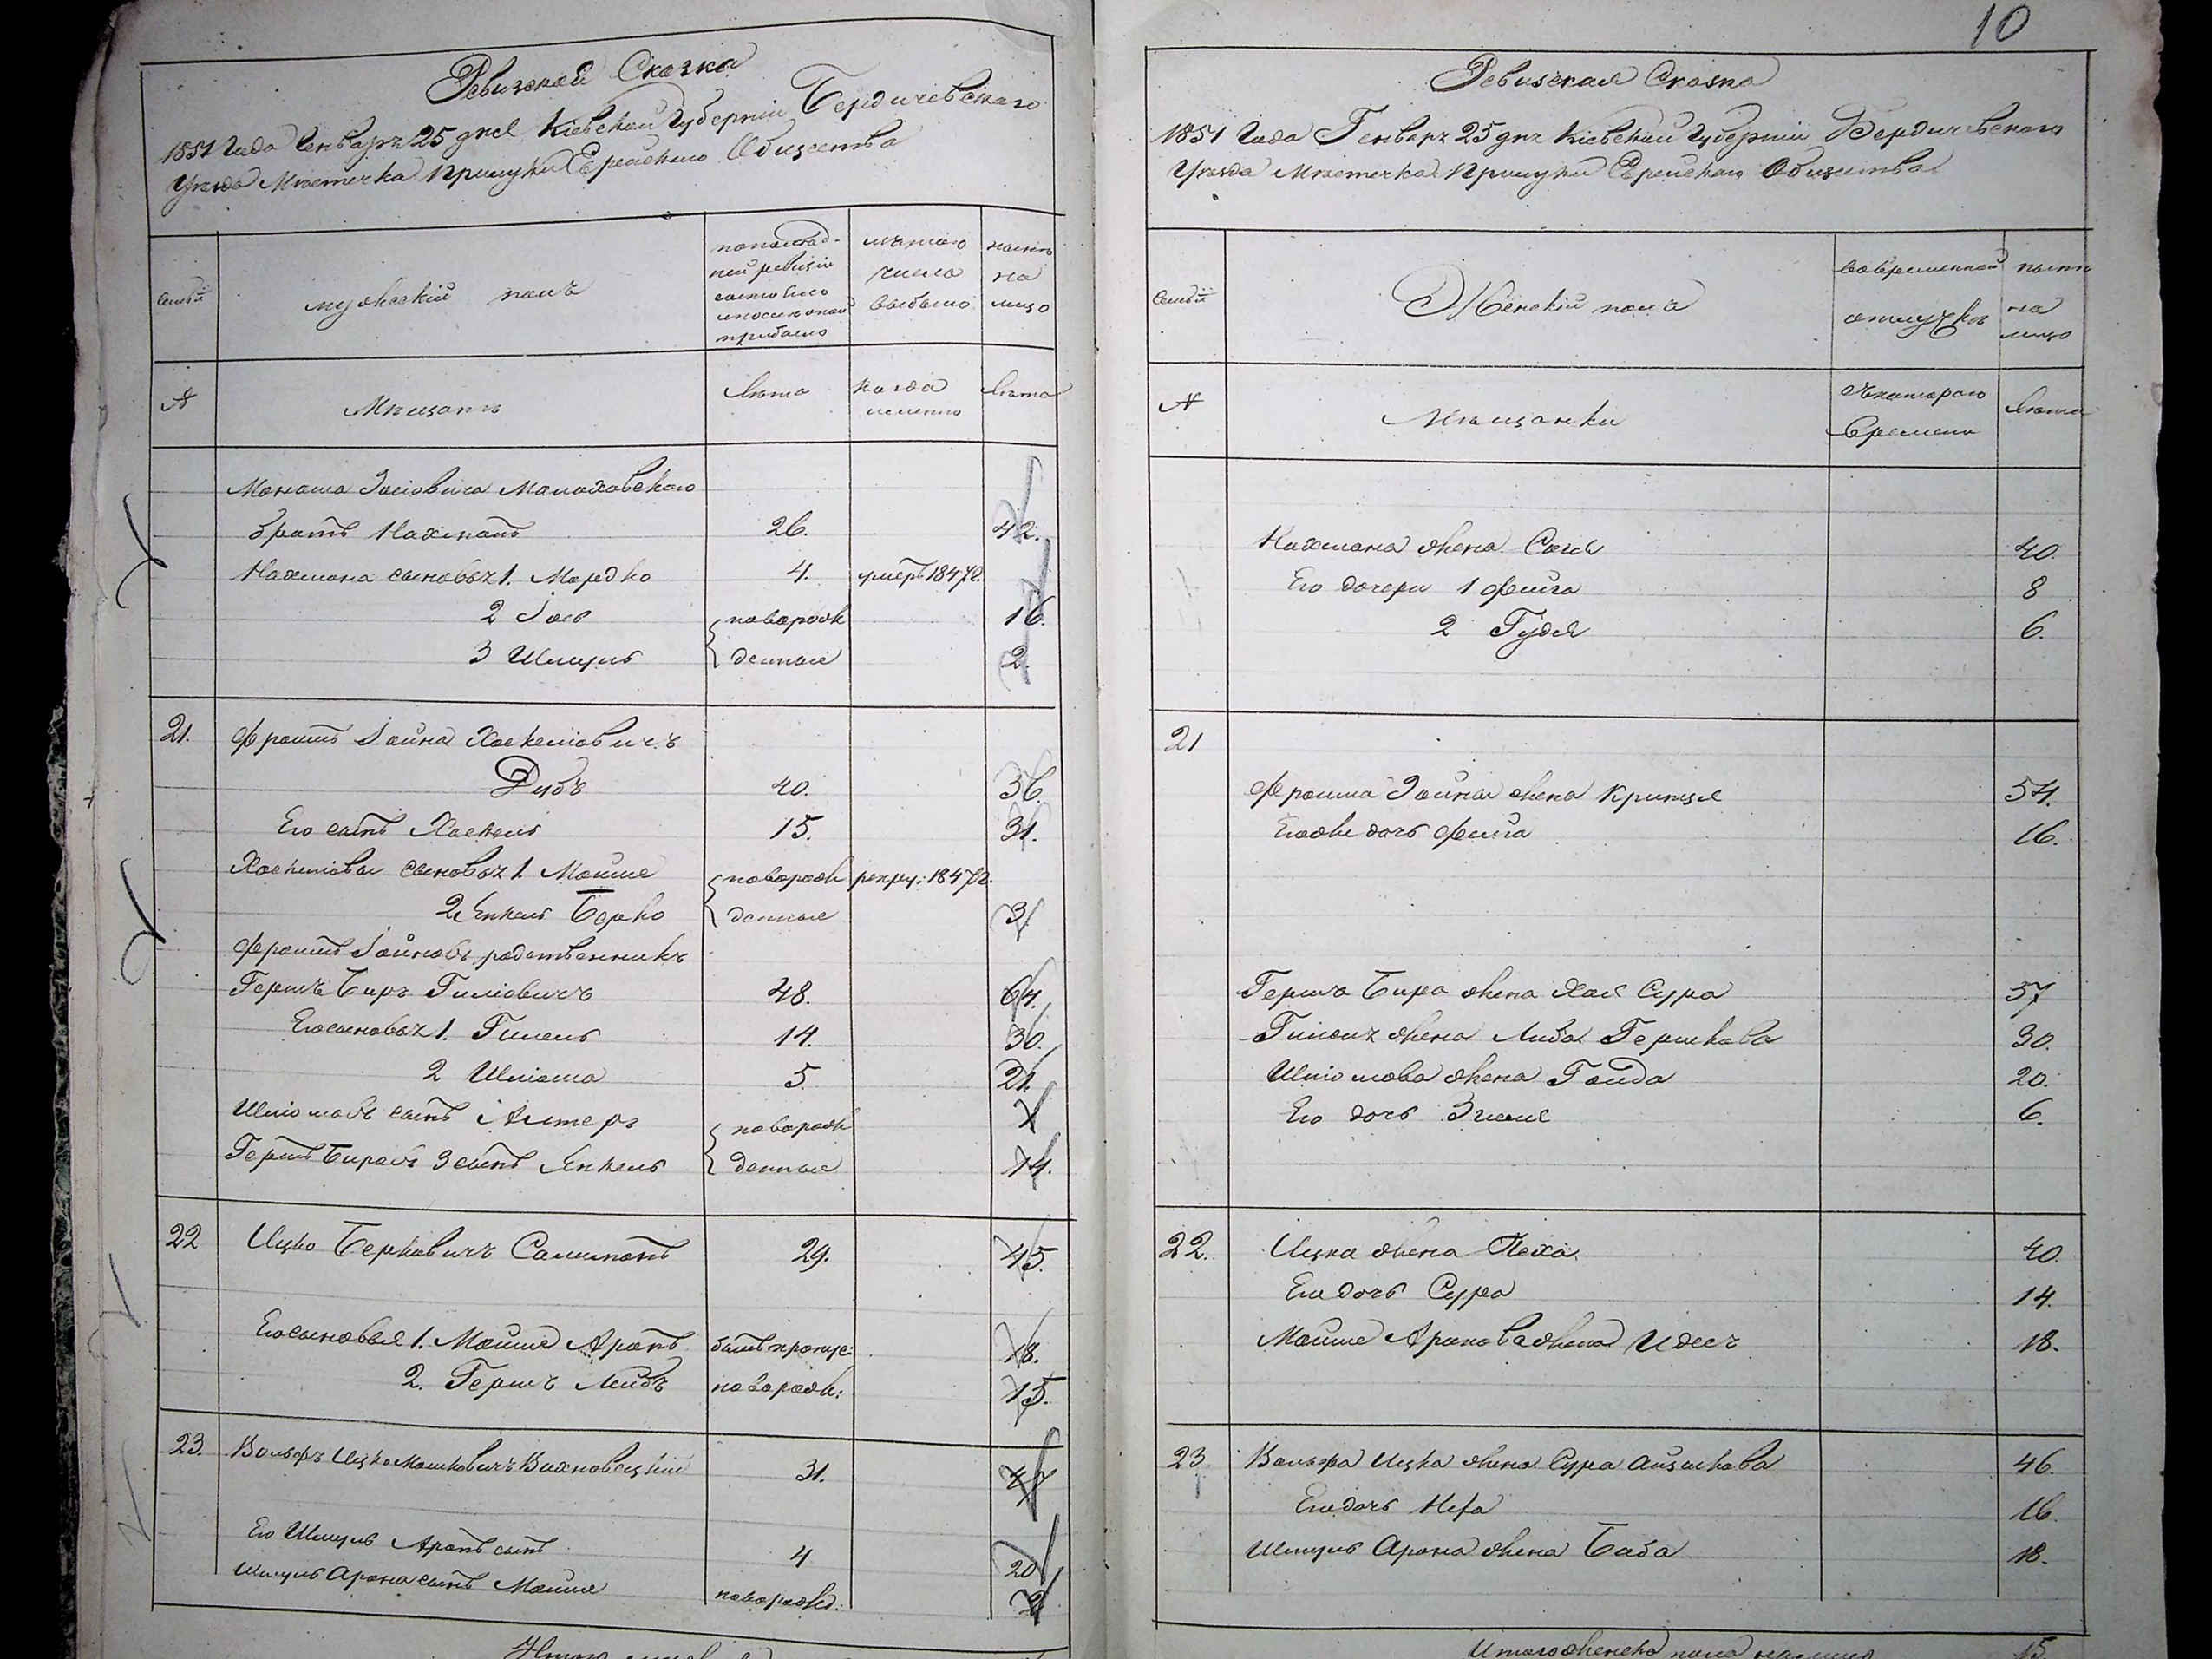 Ревизская Сказка
1851 Года Генваря 25 дня Кіевской Губерніи Бердичевскаго
Уезда Местечка Прилуки Еврейскаго Общества
семьи
мужескій полъ
по последней ревизіи состояло и после оной прибыло
изъ того числа выбыло
ныне на лицо
№
Мещане
Лета
когда именно
Лета
Монаша Іосіовича Малаховскаго
братъ Нахманъ 26. 42.
Нахмана сыновья 1. Мордко 4. умеръ 1847г.
2 Іось новорож 16.
3 Шмуль денные 2.
21. Фроимъ Іойна Хаскеліовичъ
Дубъ 40. 56
Его сынъ Хаскель 15. 31.
Хаскеліовы сыновья 1. Мойше новорож рекру: 1847г.
2 Янкель Берко денные 3
Фроимъ Іойновъ родственникъ
Гершъ Беръ Гиліовичъ 48. 64.
Его сыновья 1. Гилель 14. 30.
2 Шліома 5. 21.
Шліомовъ сынъ Алтеръ новорож 1
Гершъ Беровъ 3 сынъ Янкель денные 14.
22 Ицко Берковичъ 29. 45.
Его сыновья 1. Мойше Аронъ былъ пропус: 18.
2. Гершъ Лейбъ новорож: 15.
23. Вольфъ Ицко Мошковичъ Вахновецкій 31. 47
Его Шмуль Аронъ сынъ 4 20
Шмуль Арона сынъ Мойше новорожд: 2
10
Ревизская Сказка
1851 Года Генваря 25 дня Кіевской Губерніи Бердичевскаго
Уезда Местечка Прилуки Еврейскаго Общества
семьи
Женскій полъ
во временной отлучке
ныне на лицо
№
Мещанки
Съ котораго Времени
Лета
Нахмана жена Сося 40.
Его дочери 1 Фейга 8
2 Гудя 6.
21
Фроима Іойны жена Крейнця 54.
Его же дочь Фейга 16.
Герша Бера жена Хая Сура 57
Гилеля жена Либа Гершкова 30.
Шліомова жена Гольда 20.
Его дочь 6.
22. Ицка жена Неха 40.
Его дочь Сура 14.
Мойше Аронова жена Идесъ 18.
23 Вольфа Ицка жена Сура Айзикова 46.
Его дочь 16.
Шмуль Арона жена Баба 18.
Итого женска пола на лицо 15.